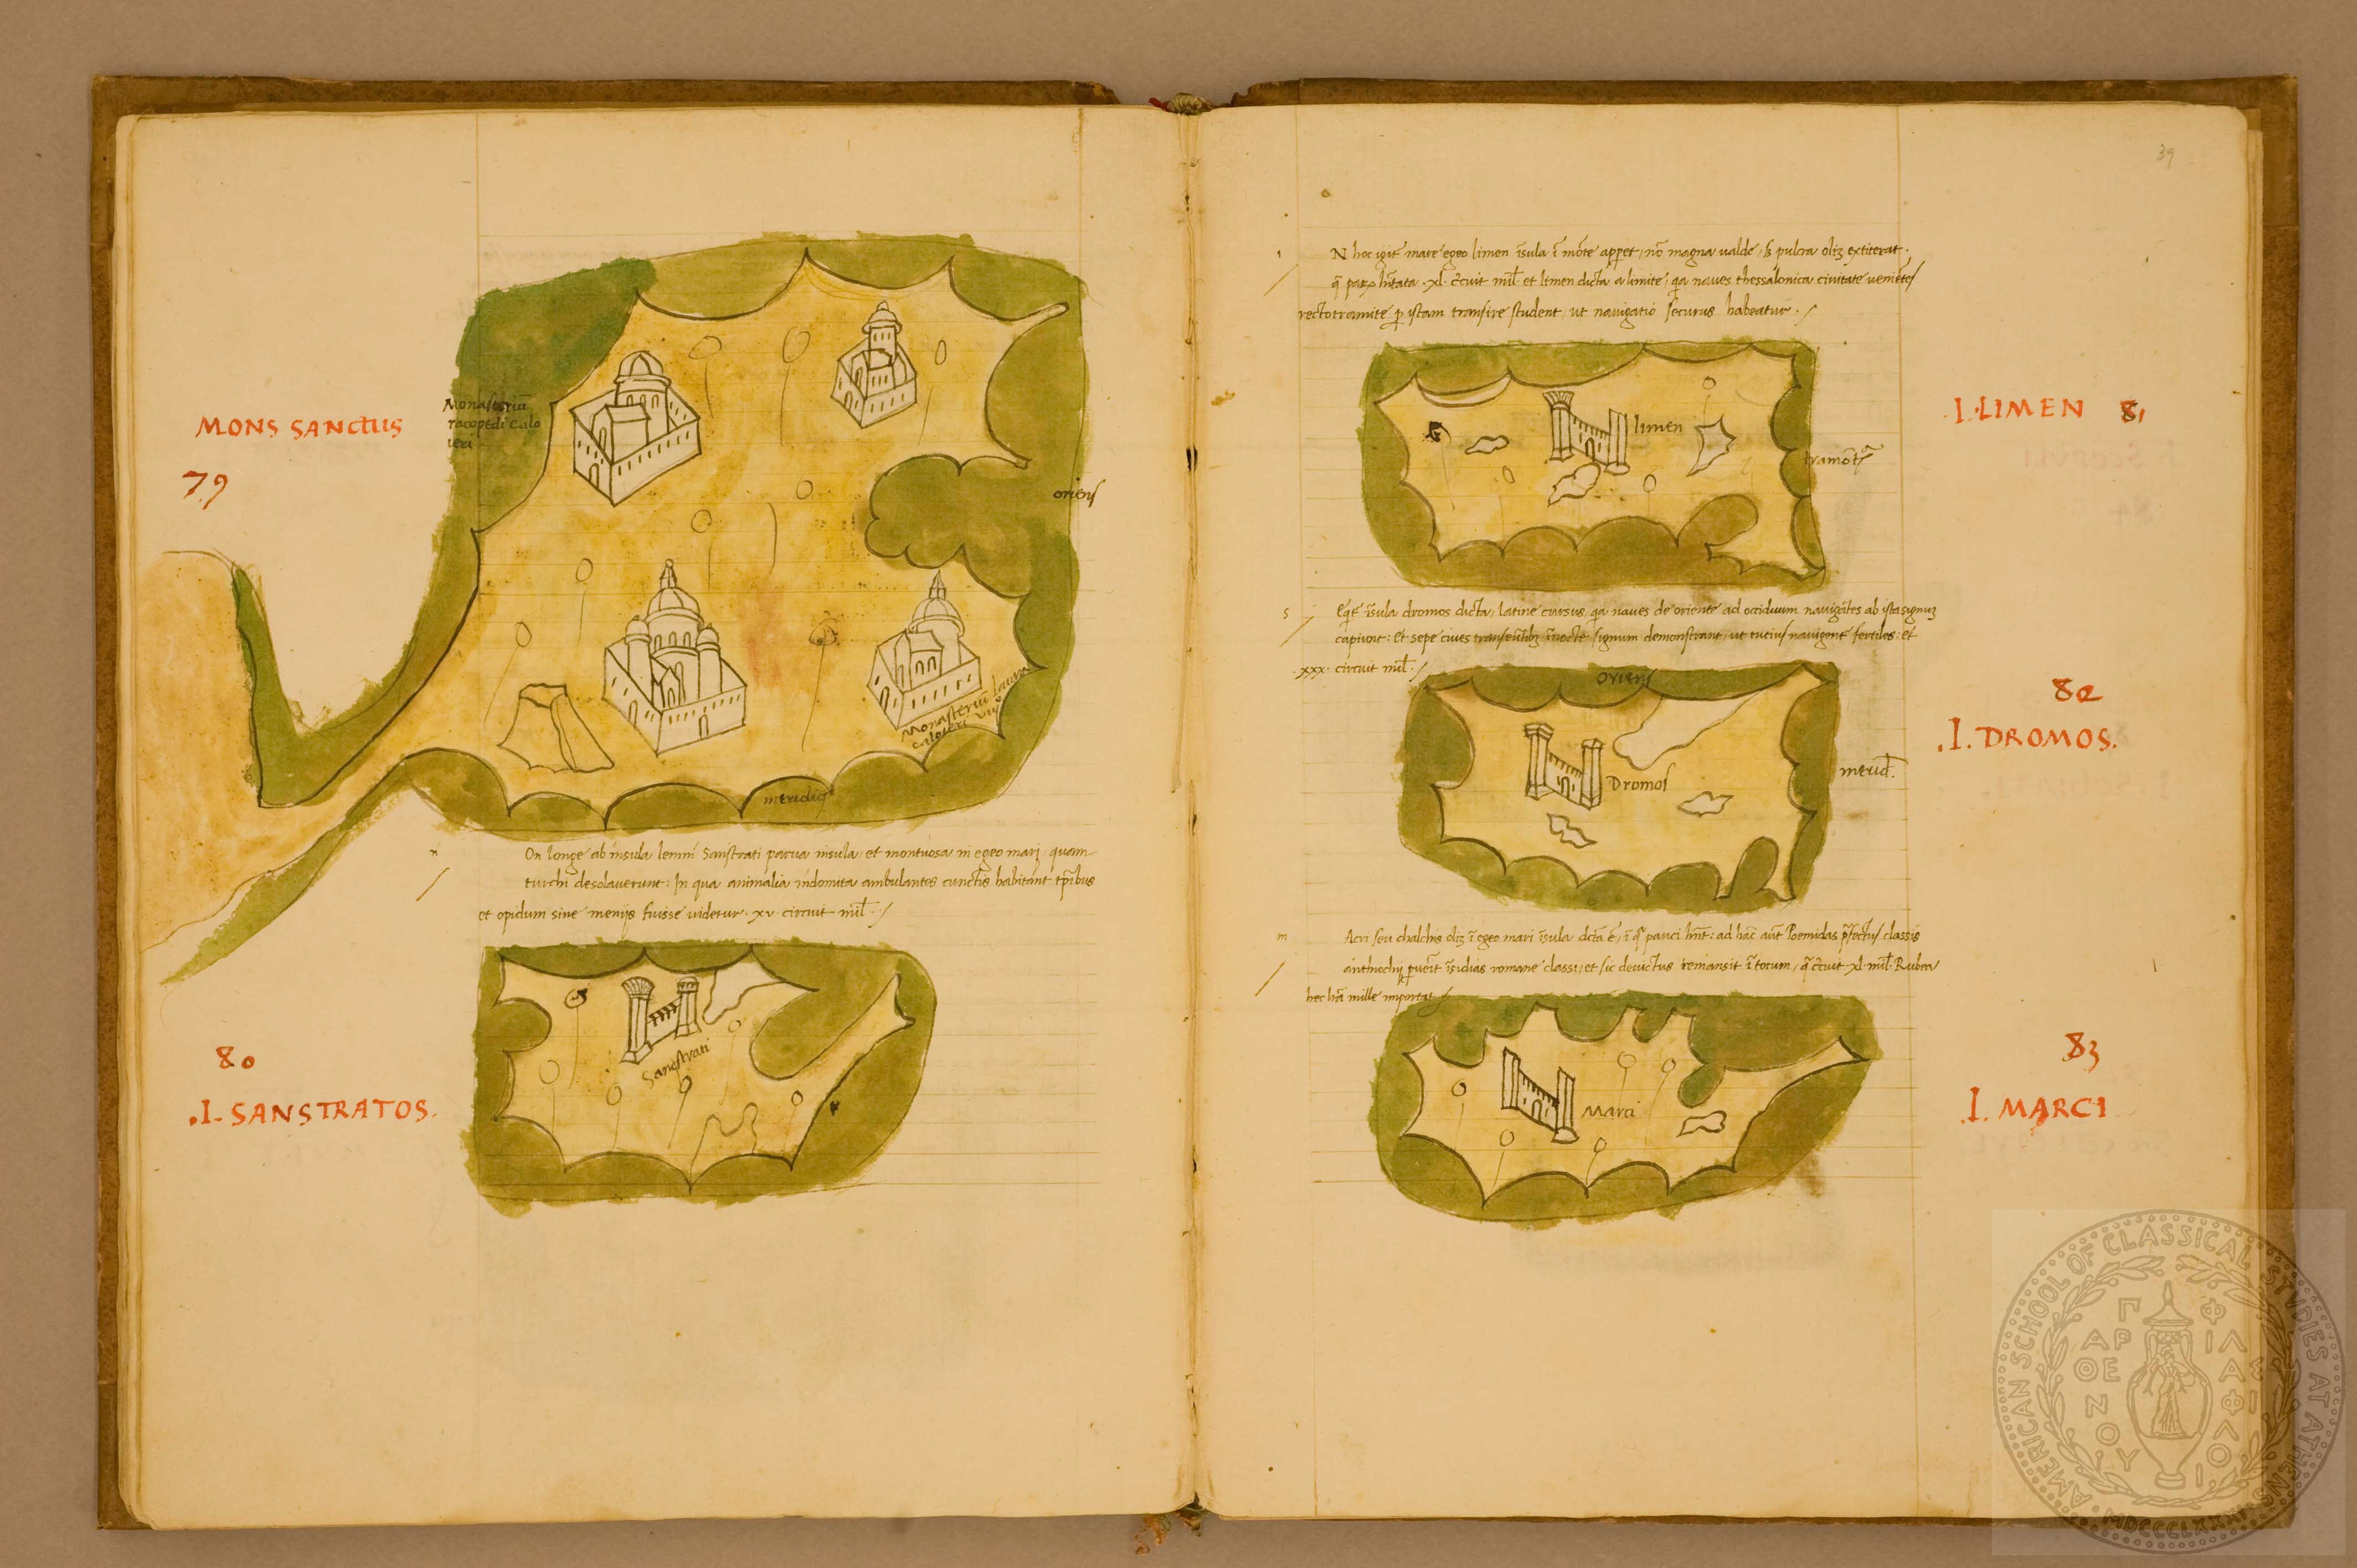 MONS SANCTUS
79
Monasteriū
calo
ieri
oriens
Monasteriū laura
caloieri
meridies
n
On longe ab insula lemni Sanstrati parva insula et montuosa in egeo mari quam
turchi desolaverunt: In qua animalia indomita ambulantes cunctis habitant tp̄ibus
et opidum sine menijs fuisse videtur. xv. circuit mil̄.
80
.I. SANSTRATOS.
Sanstrati
39
N hoc igit̄ mare egeo limen īsula ī mōte apparet, nō magna valde, pulcra oliʒ extiterat.
xl. c̄cuit mil̄. et limen dicta a limite, qa naves thessalonica civitate veniētes
recto tramite p istam transire student, ut navigatio securus habeatur.
I. LIMEN 81
limen
tramōtā
s
Eqt̄ īsula dromos dicta, latine cursus, qa naves de oriente ad occiduum navigātes ab ista signuʒ
capiunt: Et sepe cives transeūtibʒ ī nocte signum demonstrant, ut tucius navigent fertiles: et
xxx. circuit mil̄.
82
.I. DROMOS.
oriens
Dromos
merid̄.
m
Acri seu chalchis oliʒ ī egeo mari īsula dcta ē, ī qa pauci hn̄t: ad hāc aūt Poemidas p̄fectus classis
anthiochij īsidias romane classi, et sic devictus remansit ī totum, c̄cuit xl mil̄. Rubea
hec mille importat
83
.I. MARCI
Marci
AMERICAN SCHOOL OF CLASSICAL STVDIES AT ATHENS
MDCCCLXXXI
ΠΑΡΘΕΝΟΥ
ΦΙΛΑΣ ΦΙΛΟΙ